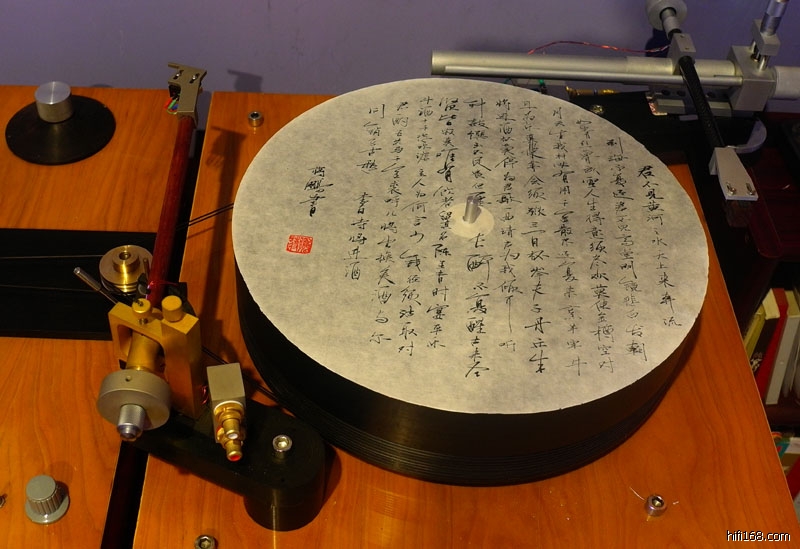 君不見黃河之水天上來奔流
到海不復返君不見高堂明鏡悲白髮朝
如青絲暮成雪人生得意須盡歡莫使金樽空對
月天生我材必有用千金散盡還復來烹羊宰牛
且為樂會須飲三百杯岑夫子丹丘生
將進酒君莫停與君歌一曲請君為我傾耳聽
鐘鼓饌玉不足貴但願長醉不願醒古來圣
賢皆寂寞惟有飲者留其名陳王昔時宴平樂
斗酒十千恣歡謔主人為何言少錢徑須沽取對
君酌五花馬千金裘呼兒將出換美酒與爾
同銷萬古愁 書 將進酒
鵬書
hifi168.com